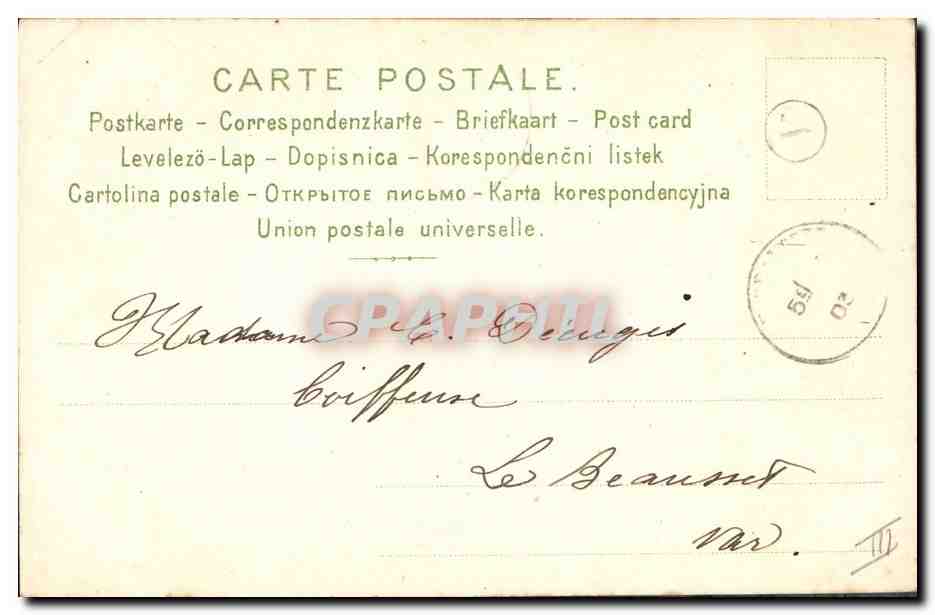 CARTE POSTALE.
Postkarte - Correspondenzkarte - Briefkaart - Post card
Levelező-Lap - Dopisnica - Korespondenčni listek
Cartolina postale - Открытое письмо - Karta korespondencyjna
Union postale universelle.
CPAPHIL
Madame C.
Coiffeuse
Le Beausset
Var.
03
III